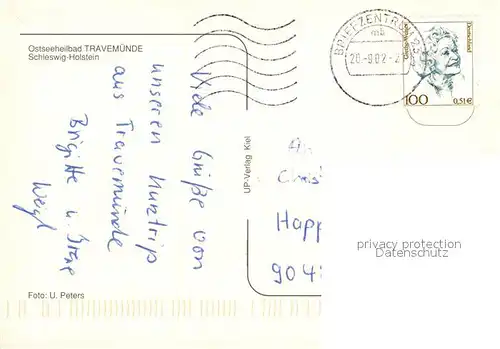 Ostseeheilbad TRAVEMÜNDE
Schleswig-Holstein
Viele Grüße von
unseren Kurztrip
aus Travemünde
Brigitte u.
Weigl
Foto: U. Peters
UP-Verlag Kiel
BRIEFZENTRUM
mb
20.-9.02.-2
Deutschland
100
0,51€
An
Happ
904
privacy protection
Datenschutz